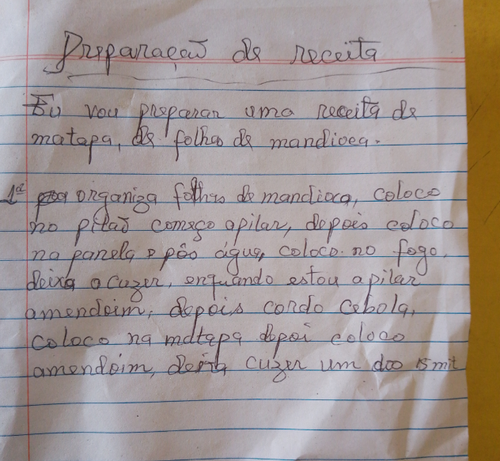 Preparação de receita
Eu vou preparar uma receita de
matapa, de folha de mandioca.
1º organiza folhas de mandioca, coloco
no pilão começo apilar, depois coloco
na panela e pôs água, coloco no fogo,
deixa a cuzer, enquando estou a pilar
amendoim, depois cordo cebola,
coloco na matapa depoi coloco
amendoim, deixa cuzer um doo 15 mit